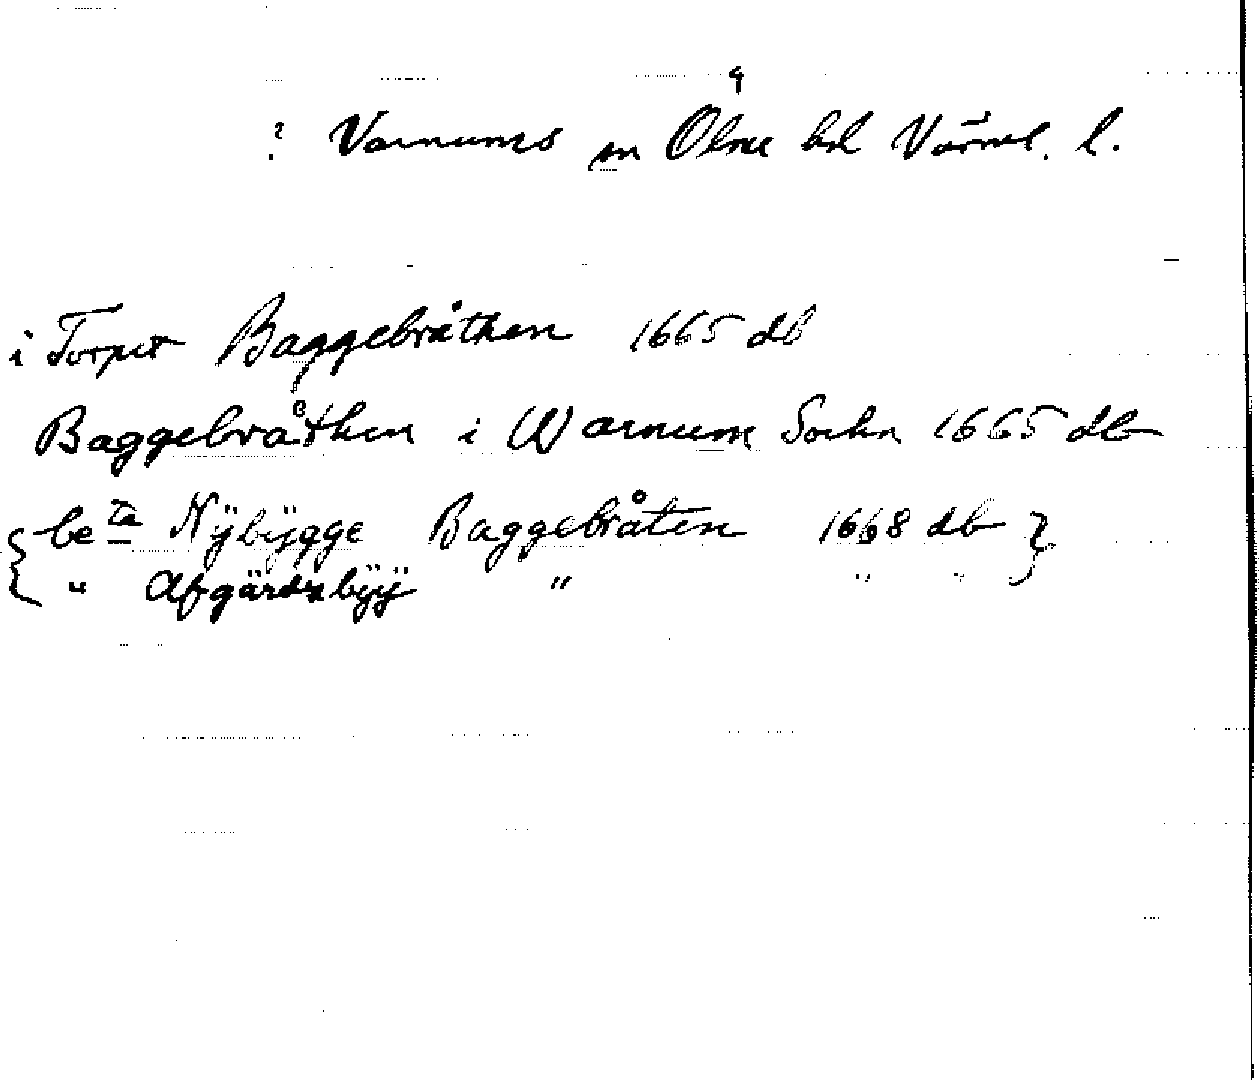 9
? Varnums sn Ölme hd Värml. l.
i Torpet Baggebråthen 1665 db
Baggebråthen i Warnum Sochn 1665 db
{ be ta Nÿbÿgge Baggebråten 1668 db }
" Afgärdzbÿÿ " " "